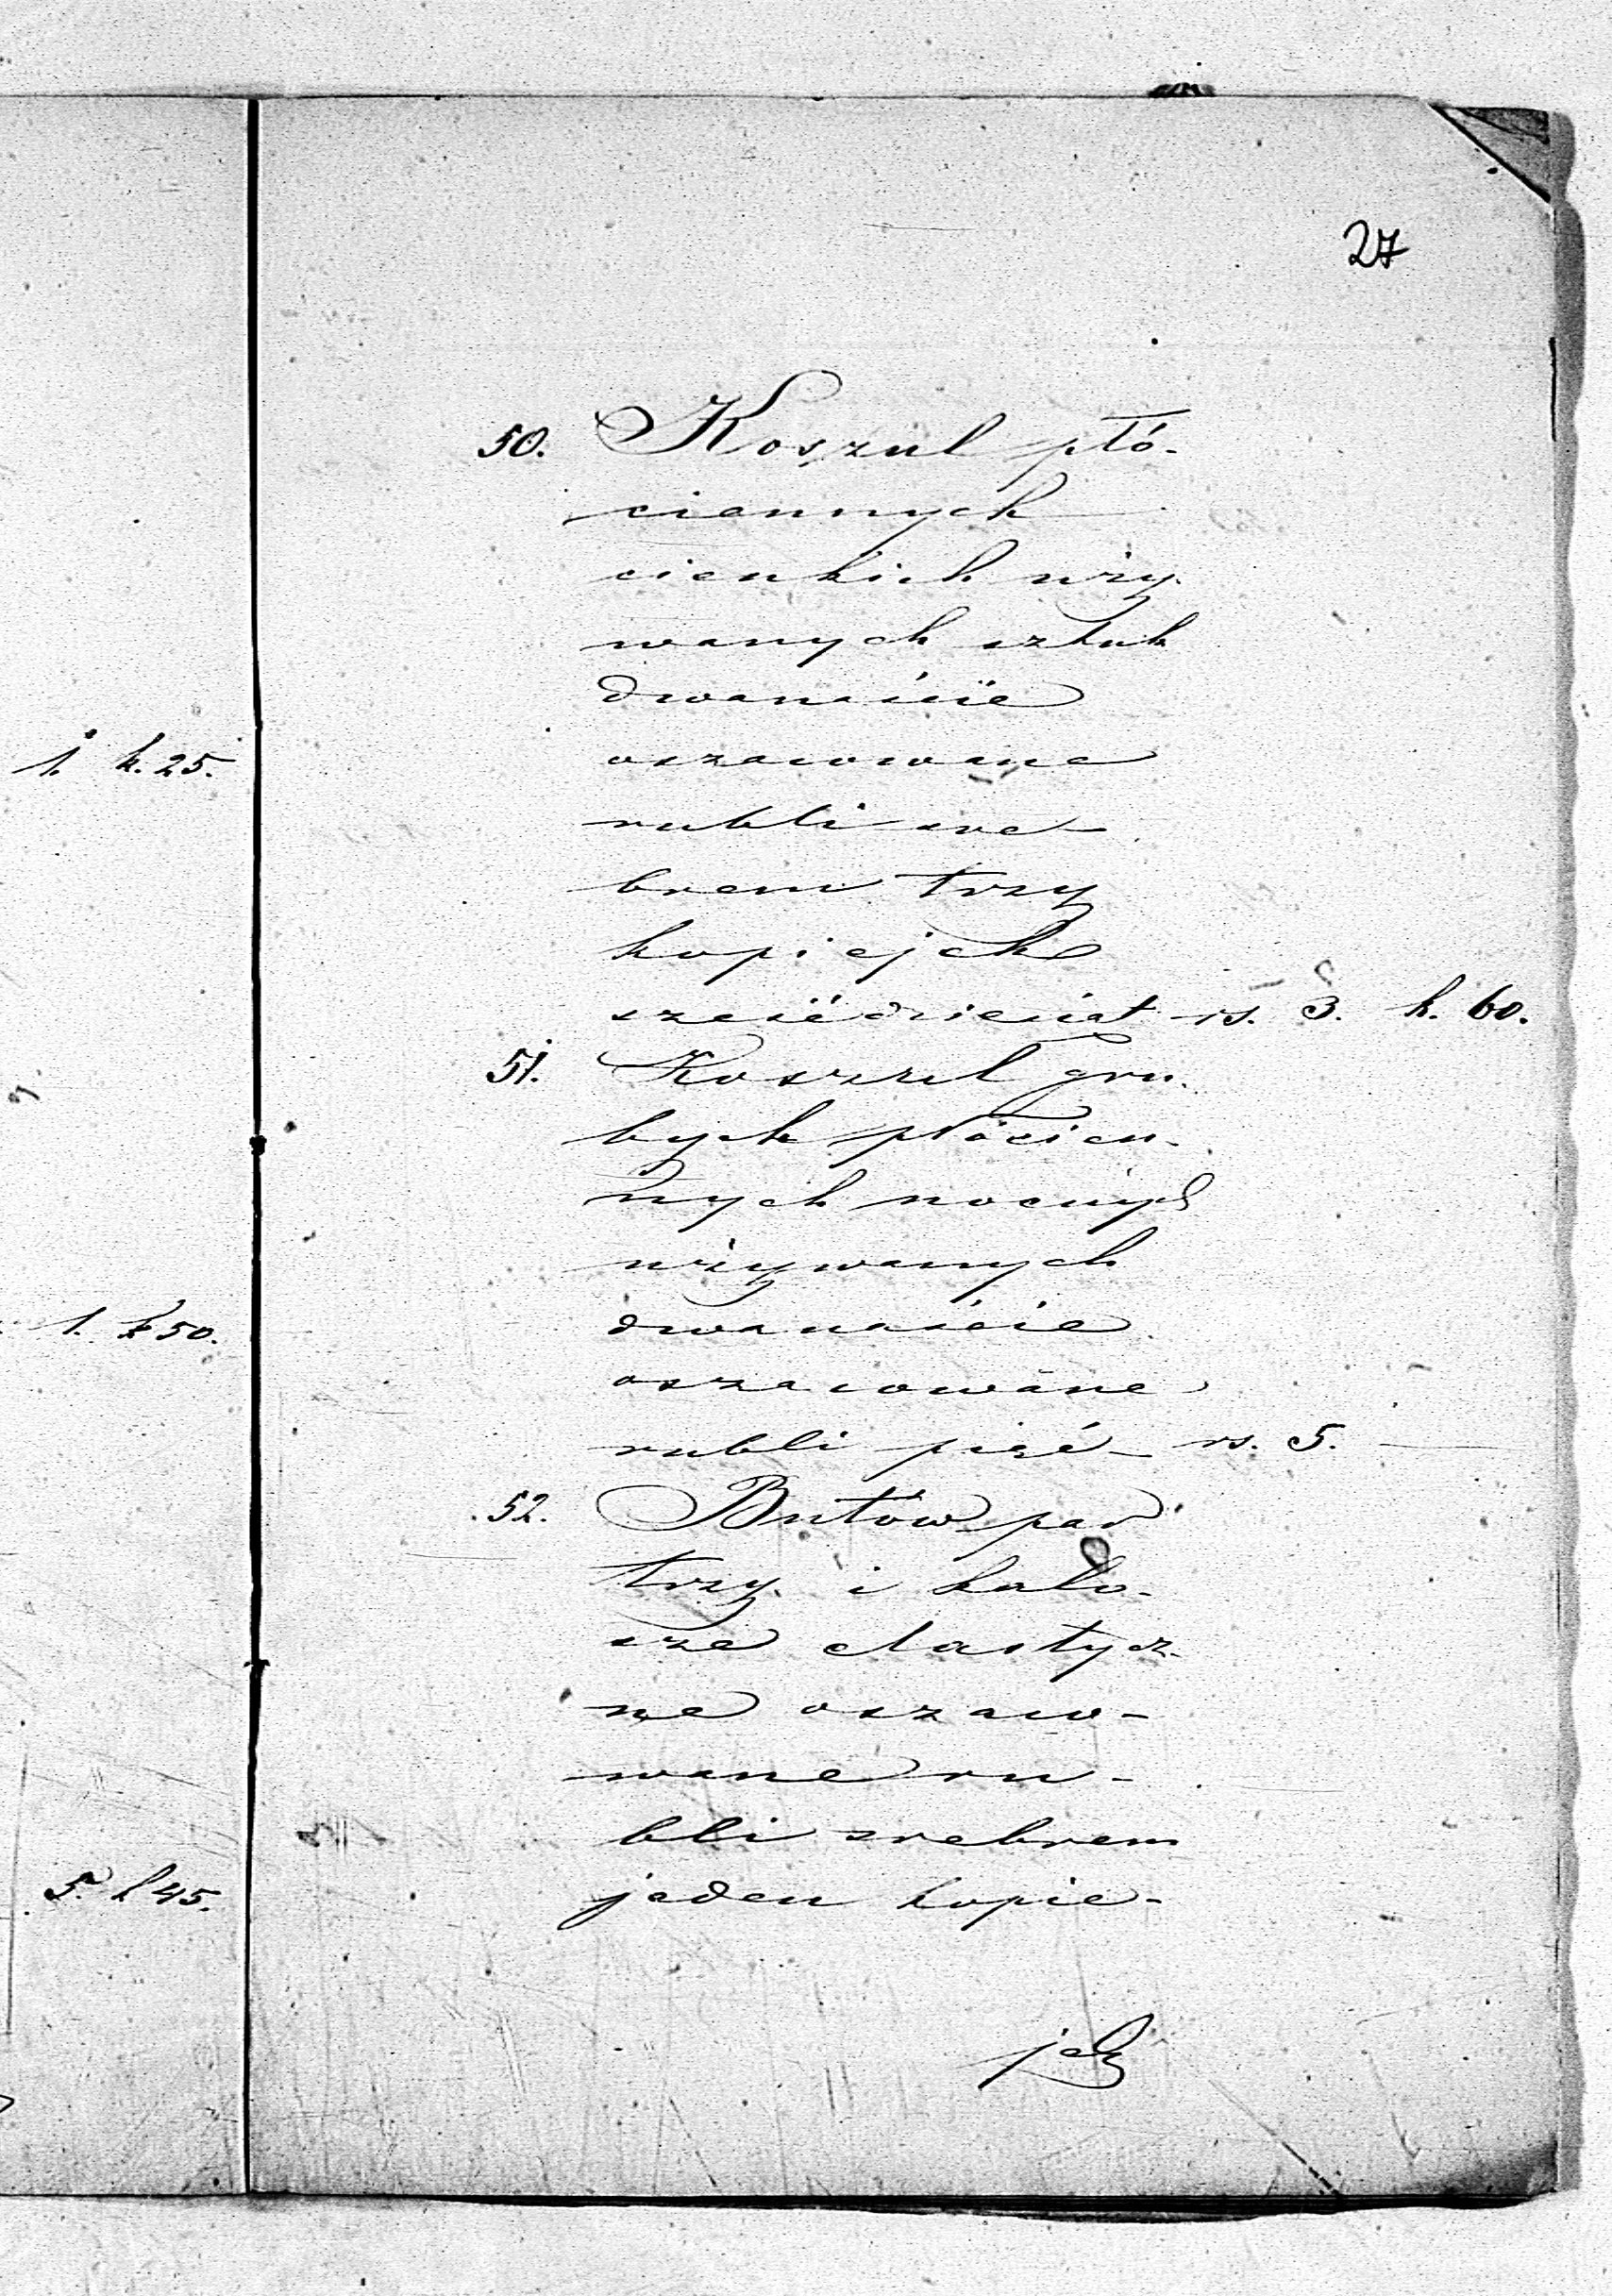 27
50. Koszul płó-
ciennych
cienkich uży-
wanych sztuk
dwanaście
oszacowane
rubli sre-
brem trzy
kopiejek
sześćdziesiąt rs. 3. k. 60.
51. Koszul gru-
bych płócien-
nych nocnych
używanych
dwanaście
oszacowane
rubli pięć rs. 5.
52. Butów par
trzy i kalo-
sze elastycz-
ne oszaco-
wane ru-
bli srebrem
jeden kopie-
jek
1. k. 25.
1. k 50.
5. k 45.